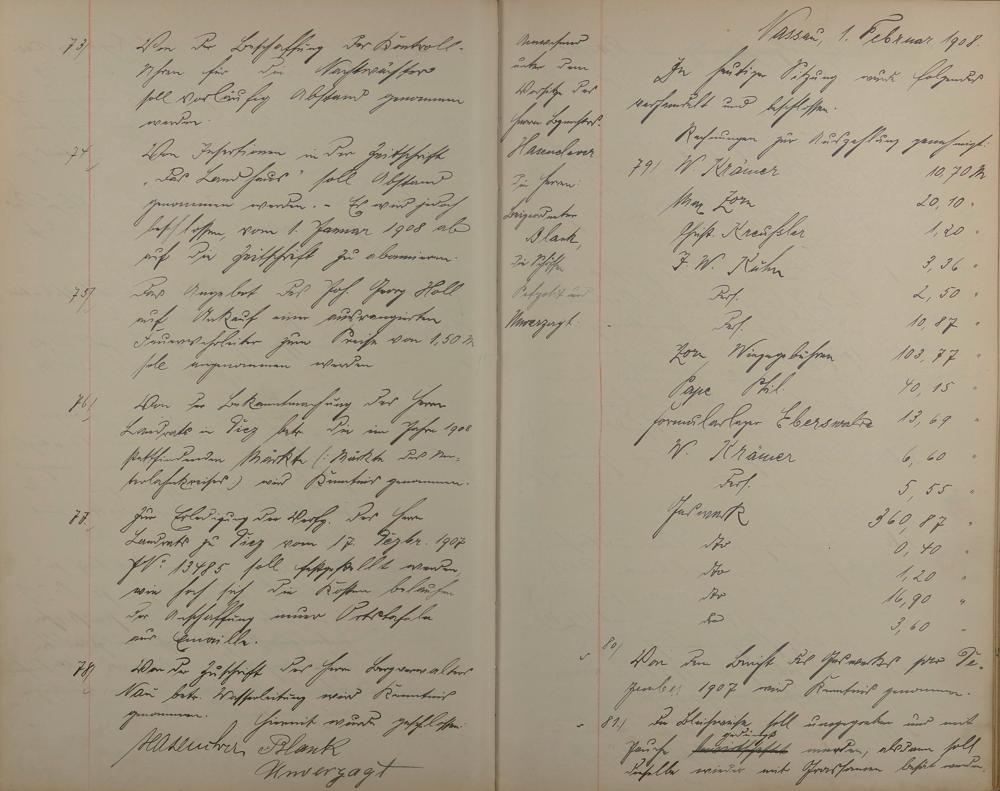 73/ Von der Beschaffung der Kontroll-
Uhren für die Nachtwächter
soll vorläufig Abstand genommen
werden.
74/ Von Insertionen in der Zeitschrift
"Das Landhaus" soll Abstand
genommen werden. - Es wird jedoch
beschlossen, vom 1. Januar 1908 ab
auf die Zeitschrift zu abonnieren.
75/ Das Angebot des Joh. Georg Holl
auf Ankauf einer ausrangierten
Feuerwehrleiter zum Preise von 1,50 M
soll angenommen werden
76/ Von der Bekanntmachung des Herrn
Landrats in Diez betr. die im Jahre 1908
stattfindenden Märkte (: Märkte des Un-
terlahnkreises) wird Kenntnis genommen.
77. Zur Erledigung der Verfg. des Herrn
Landrats zu Diez vom 17. Dezbr. 1907
No. 13485 soll festgestellt werden
wie hoch sich die Kosten belaufen
der Anschaffung neuer Ortstafeln
aus Emaille.
78/ Von der Zuschrift des Herrn Bergverwalters
betr. Wasserleitung wird Kenntnis
genommen. Hiermit wurde geschlossen
Hasenclever Blank
Unverzagt
Anwesend
unter dem
Vorsitze des
Herrn Bgmstrs.
Hasenclever
die Herren:
Beigeordneter
Blank,
die Schöffen
und
Unverzagt.
Nassau, 1. Februar 1908.
In heutiger Sitzung wurde folgendes
verhandelt und beschlossen.
Rechnungen zur Auszahlung genehmigt:
79/ W. Krämer 10,70 M
Max Zorn 20,10 "
Gust. Kreußler 1,20 "
J. W. Kuhn 3,36 "
Ders. 2,50 "
Ders. 10,87 "
Zorn, Wiegegebühren 103,77 "
Pape 40,15 "
Formularlager Eberswalde 13,69 "
W. Krämer 6,60 "
Ders. 5,55 "
Gaswerk 360,87 "
dto 0,40 "
dto 1,20 "
dto 16,90 "
dto 3,60 "
80/ Von dem Bericht des Gaswerks pro De-
zember 1907 wird Kenntnis genommen.
81/ Die Bleichwiese soll umgegraben und mit
gedüngt
Jauche werden, alsdann soll
dieselbe wieder mit Grassamen besät werden.